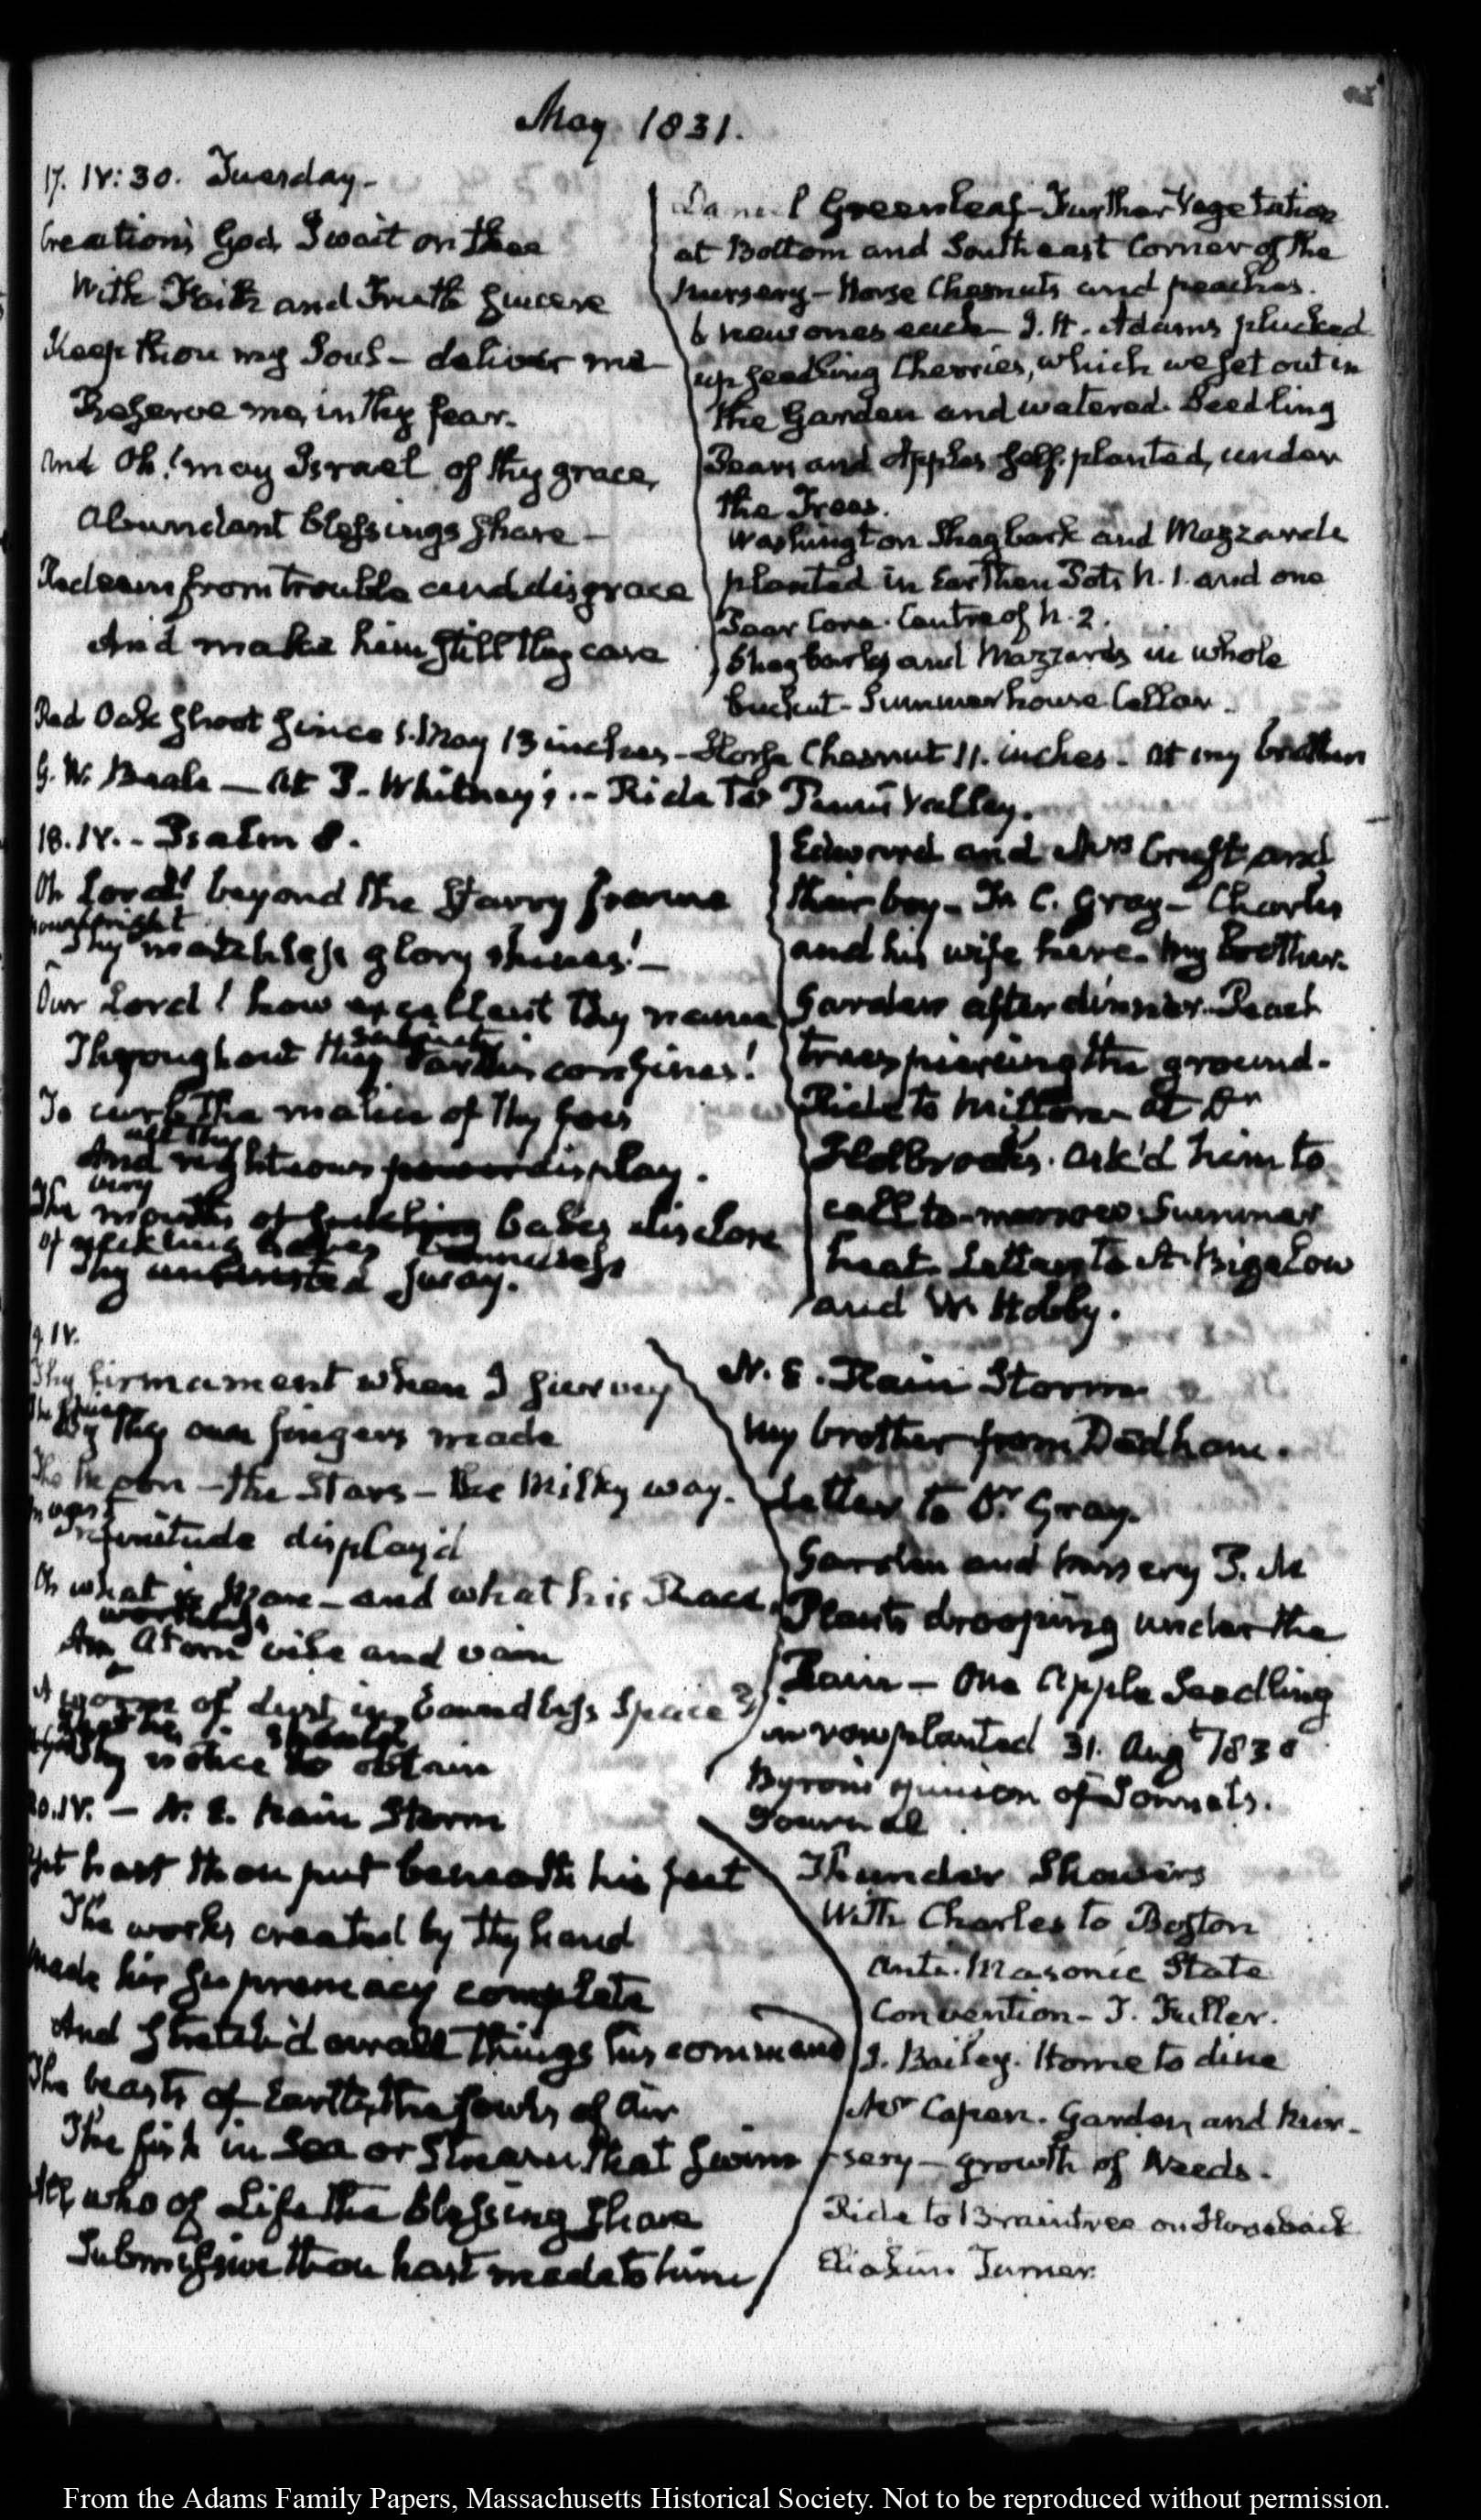 May 1831.
17. IV:30. Tuesday-
Creation's God, I wait on thee
With Faith and Truth sincere
Keep thou my Soul - deliver me
Preserve me, in thy fear.
And Oh! may Israel of thy grace,
Abundant blessings share -
Redeem from trouble and disgrace
And make him still thy care
Daniel Greenleaf - Further Vegetation
at Bottom and Southeast Corner of the
Nursery - Horse Chesnuts and peaches.
6 new ones each - I. H. Adams plucked
up seedling Cherries, which we set out in
the Garden and watered. Seedling
Pears and Apples self-planted, under
the Trees.
Washington Shagbark and Mazzards
planted in Earthen Pots N. 1. and one
Pear Core. Centre of N. 2.
Shagbarks and Mazzards in whole
bucket - Summerhouse Cellar.
Red Oak shoot since 1. May 13 inches - Horse Chesnut 11. inches - At my brothers
G. W. Beale - At T. Whitney's -- Ride to Penn's Valley.
18. IV. - Psalm 8.
Oh Lord! beyond the starry frame
Thy matchless glory shines! -
Our Lord! how excellent thy name
Throughout this Earth's confines!
To curb the malice of thy foes
all thy
And righteous power display.
very
The mouths of suckling babes disclose
of suckling babes
Thy unbounded sway.
Edward and Mrs Cruft and
their boy - Fr. C. Gray - Charles
and his wife here. My brother.
Garden after dinner. Peach
trees piercing the ground.
Ride to Milton - at Dr
Holbrook's. ask'd him to
call to-morrow Summer
heat. Letters to A. Bigelow
and W. Hobby.
19. IV.
Thy firmament when I survey
By thy own fingers made
The Moon - the Stars - the Milky way.
Infinitude display'd
Oh what is Man - and what his Race.
worthless
An Atom vile and vain
A worm of dust in boundless Space?
should
Thy notice to obtain
N. E. Rain Storm
My brother from Dedham.
Letter to Dr Gray.
Garden and Nursery P. M
Plants drooping under the
Rain - One Apple Seedling
in row planted 31. Augt 1830
Byron's opinion of Sonnets.
Journal.
20. IV. - N. E. Rain Storm
Yet hast thou put beneath his feet
The works created by thy hand
Made his supremacy complete
And stretch'd o'er all things his command
The beasts of Earth, the fowls of air
The fish in Sea or Stream that swim
All who of Life the blessing share
Submissive thou hast made to him
Thunder Showers
With Charles to Boston
Anti-Masonic State
Convention - T. Fuller.
J. Bailey. Home to dine
Mr Capen. Garden, and Nur-
sery - growth of Weeds.
Ride to Braintree on Horseback
Eliakim Turner.
From the Adams Family Papers, Massachusetts Historical Society. Not to be reproduced without permission.